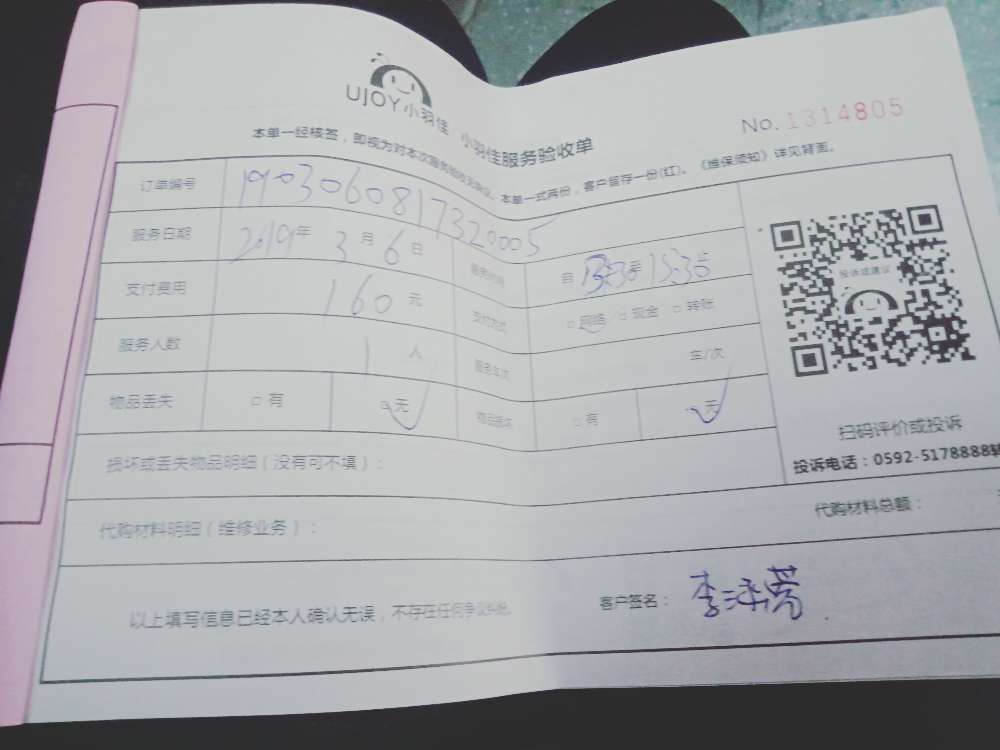 UJOY小羽佳 小羽佳服务验收单
No.1314805
本单一经核签，即视为对本次服务 本单一式两份，客户留存一份(红)。《维保须知》详见背面。
订单编号 1903060817320005
服务日期 2019年 3月 6日 服务时间 自 13:30至15:30止
支付费用 160元 支付方式 □网络 □现金 □转账
服务人数 1人 服务车次 车/次
物品丢失 □有 □无 物品损坏 □有 □无
投诉或建议
扫码评价或投诉
投诉电话：0592-5178888转
损坏或丢失物品明细（没有可不填）：
代购材料明细（维修业务）： 代购材料总额：
以上填写信息已经本人确认无误，不存在任何争议纠纷。 客户签名：李